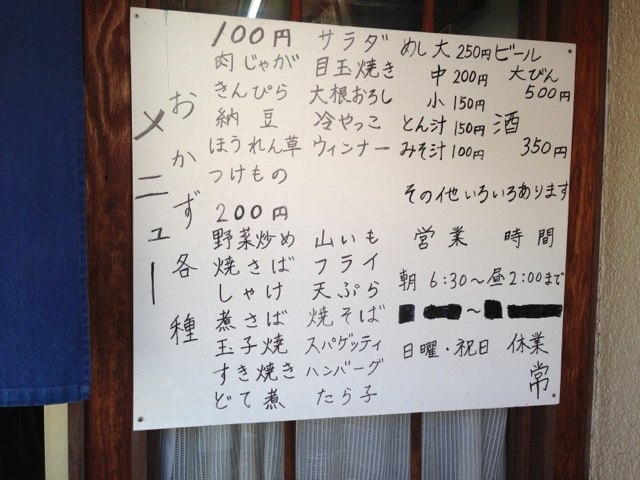 メニュー
おかず各種
100円
肉じゃが
きんぴら
納豆
ほうれん草
つけもの
サラダ
目玉焼き
大根おろし
冷やっこ
ウィンナー
200円
野菜炒め
焼さば
しゃけ
煮さば
玉子焼
すき焼き
どて煮
山いも
フライ
天ぷら
焼そば
スパゲッティ
ハンバーグ
たら子
めし大 250円
中 200円
小 150円
とん汁 150円
みそ汁 100円
ビール
大びん
500円
酒
350円
その他いろいろあります
営業時間
朝 6:30～昼2:00まで
～
日曜・祝日 休業
常